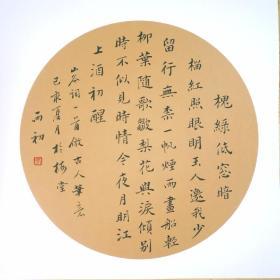 槐綠低窓暗
榴紅照眼明玉人邀我少
留行無柰一帆煙雨畫船輕
柳葉隨歌皺梨花與淚傾別
時不似見時情今夜月明江
上酒初醒
山谷詞一首倣古人筆意
己亥夏月於梅堂
雨初